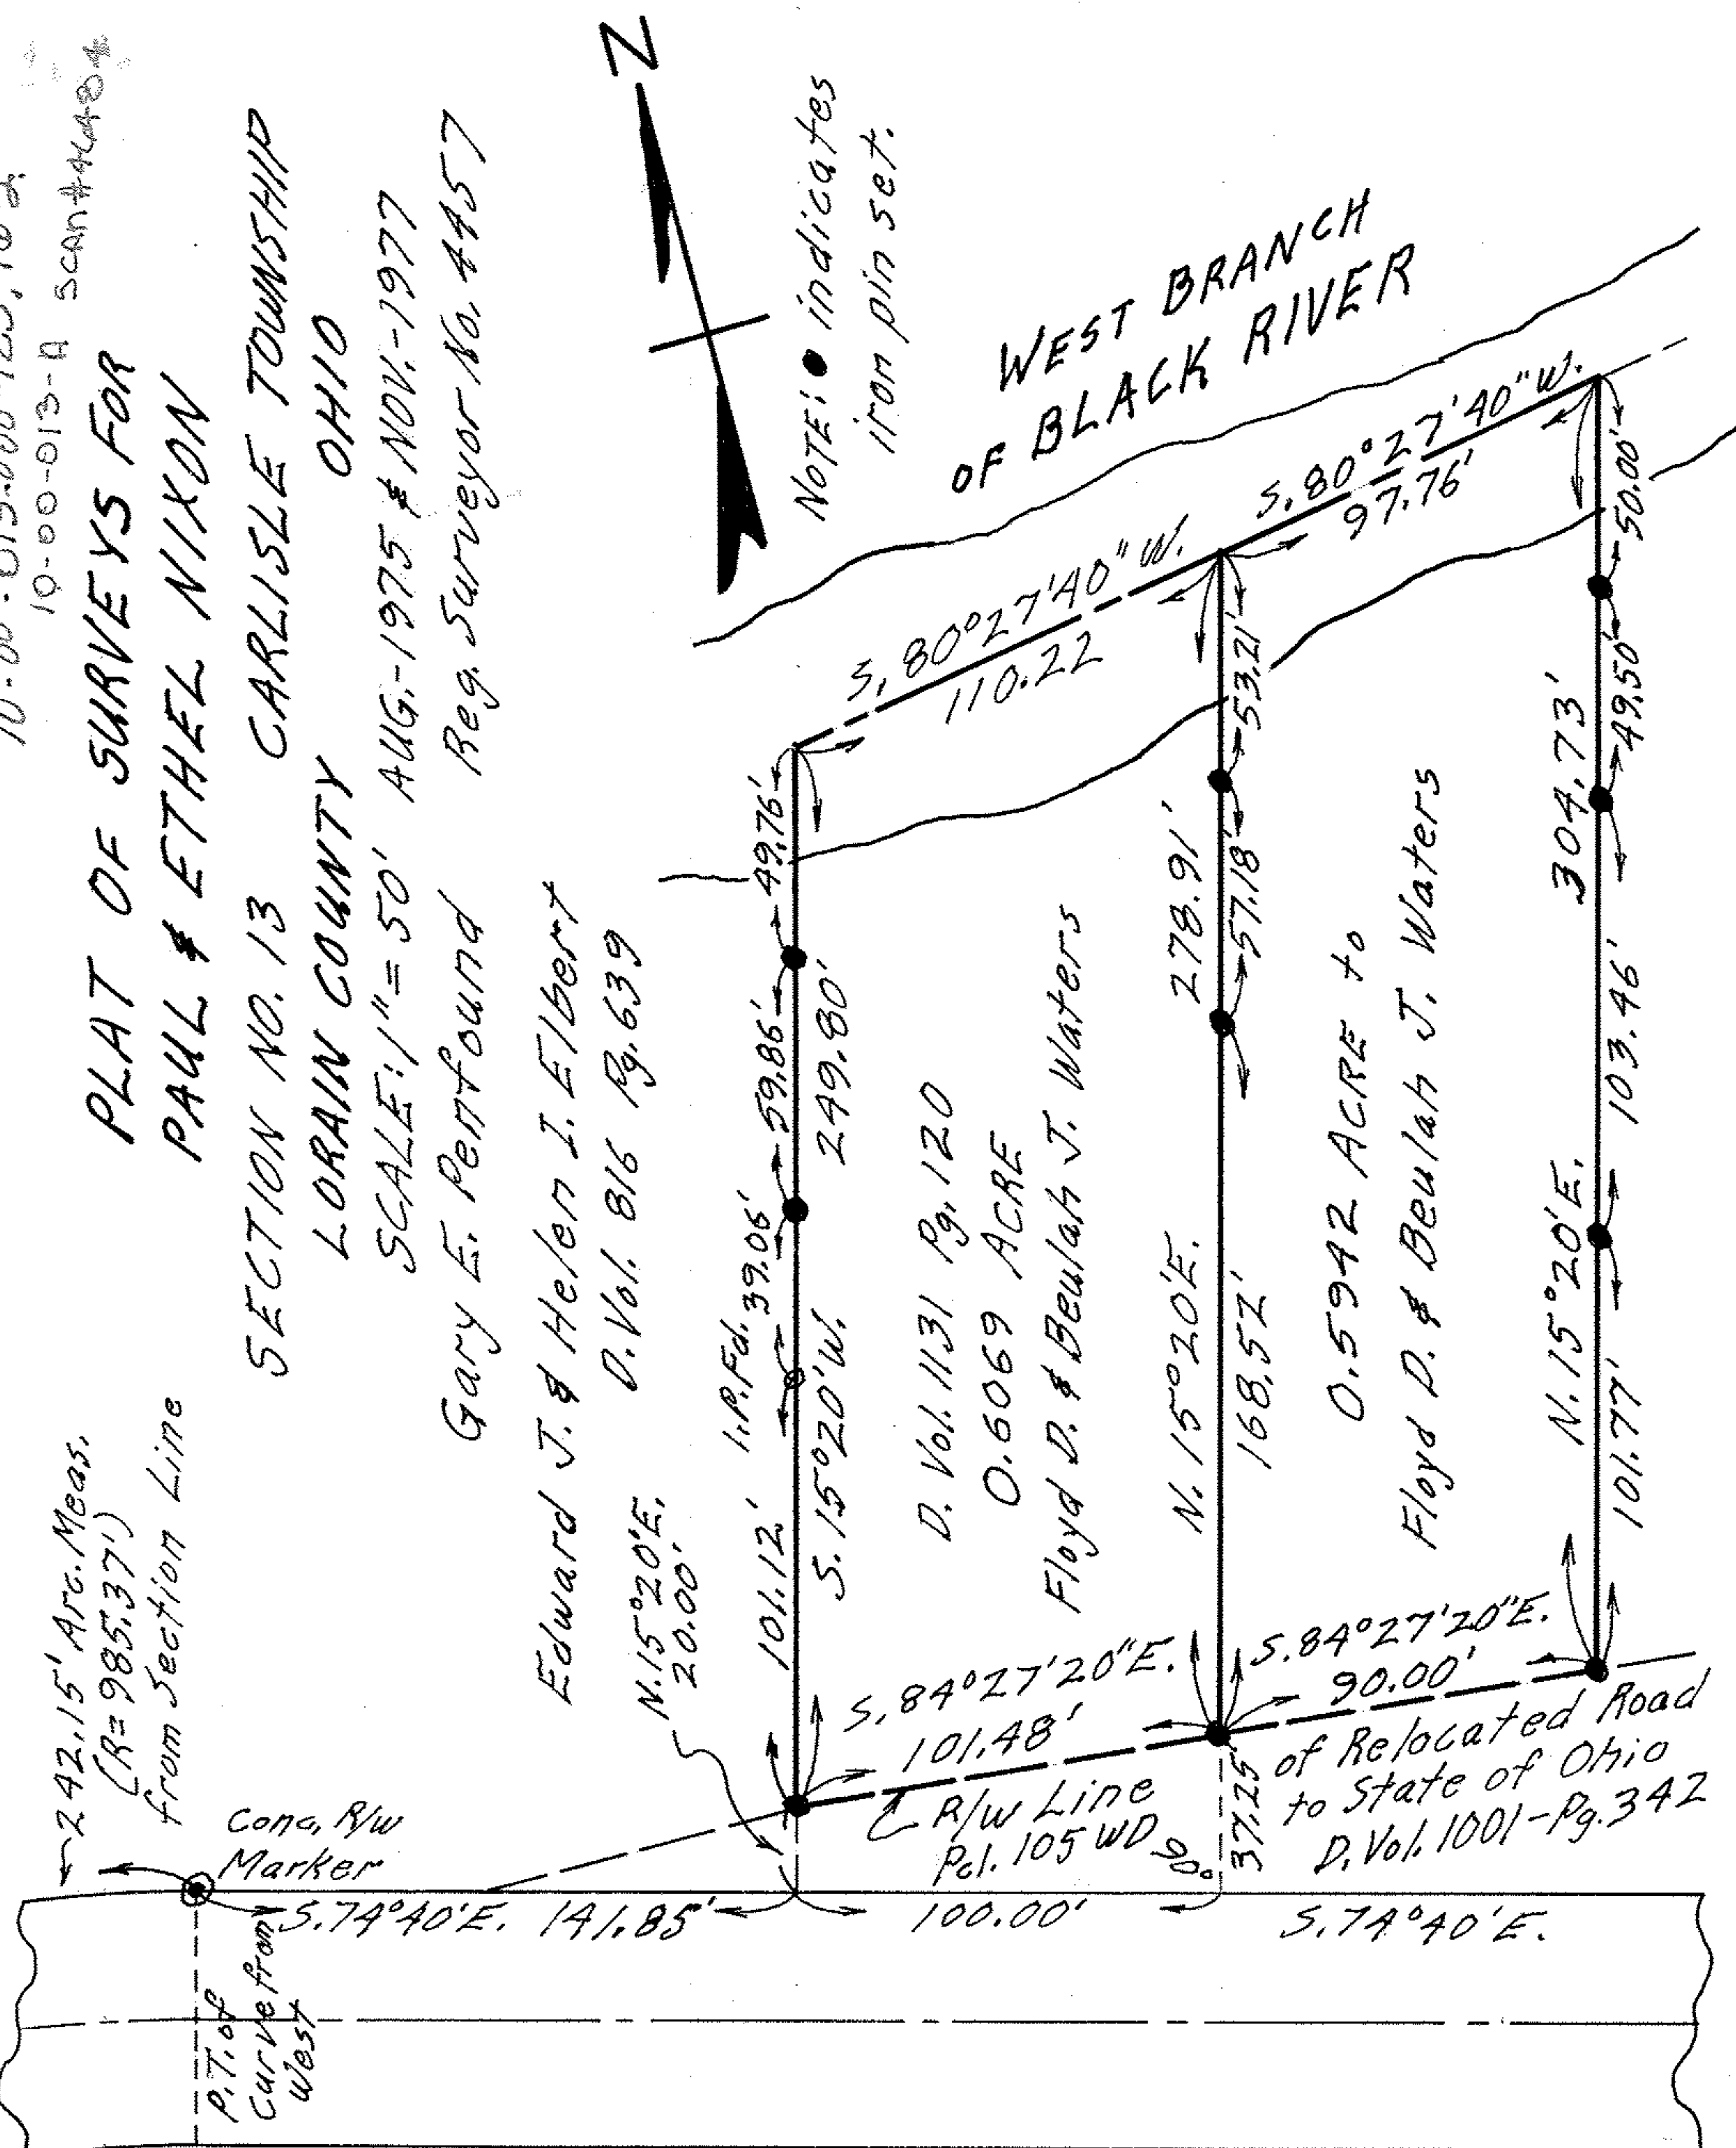 10-00-013-A
PLAT OF SURVEYS FOR
PAUL & ETHEL NIXON
SECTION NO. 13 CARLISLE TOWNSHIP
LORAIN COUNTY OHIO
SCALE: 1" = 50' AUG.-1975 & NOV.-1977
Gary E. Penfound Reg. Surveyor No. 4457
N
NOTE: ● indicates
iron pin set.
WEST BRANCH
OF BLACK RIVER
S. 80°27'40" W.
110.22
S. 80°27'40" W.
97.76'
Edward J. & Helen I. Elbert
D. Vol. 816 Pg. 639
242.15' Arc. Meas.
(R=985.37')
from Section Line
Conc. R/w
Marker
N. 15°20'E.
20.00'
101.12' I.P.Fd. 39.06' 59.86' 49.76'
S. 15°20'W. 249.80'
D. Vol. 1131 Pg. 120
0.6069 ACRE
Floyd D. & Beulah J. Waters
N. 15°20'E. 278.91'
168.52' 57.18' 53.21'
0.5942 ACRE to
Floyd D. & Beulah J. Waters
N. 15°20'E. 304.73'
101.77' 103.46' 49.50' 50.00'
S. 84°27'20"E.
101.48'
S. 84°27'20"E.
90.00'
R/w Line
Pcl. 105 WD
of Relocated Road
to State of Ohio
D. Vol. 1001-Pg. 342
90°
37.25'
S. 74°40'E. 141.85'
100.00'
S. 74°40'E.
P.T. of
Curve from
West